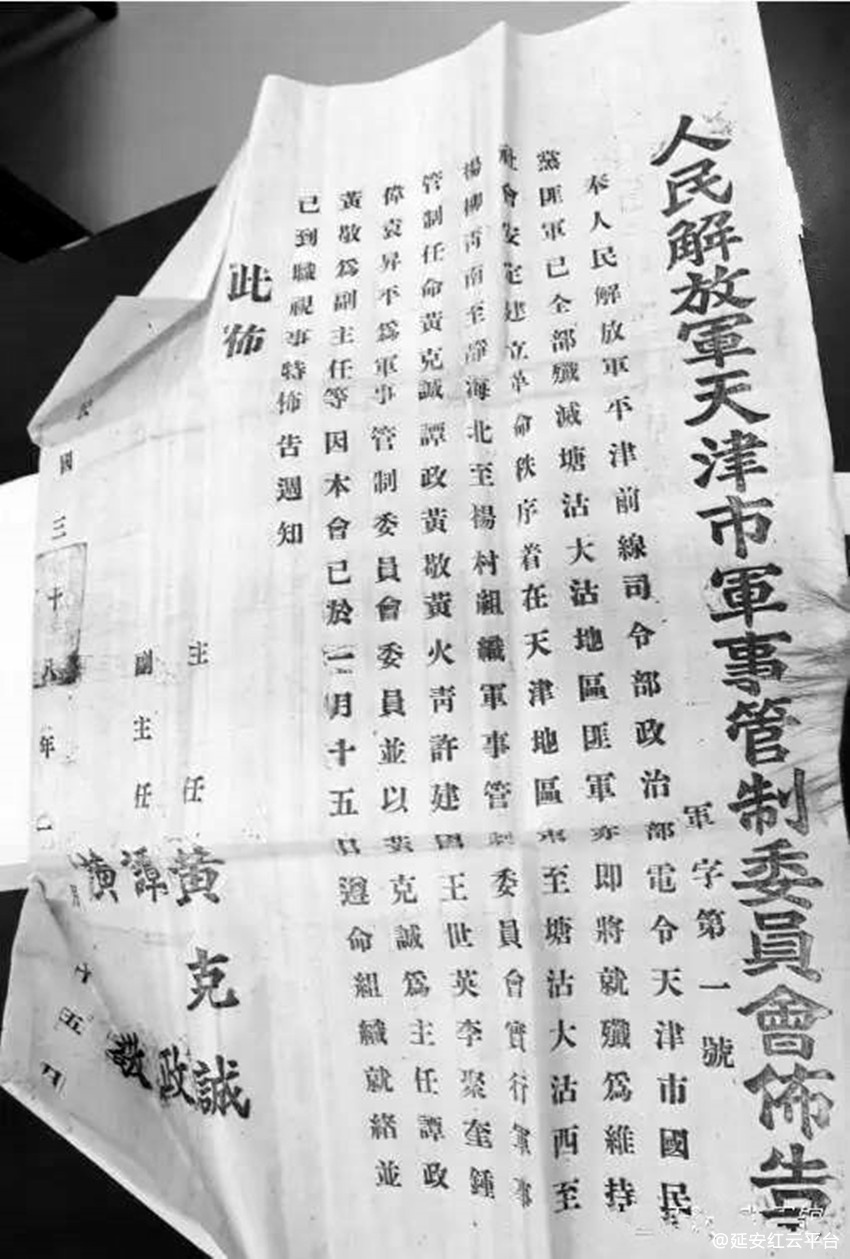 人民解放軍天津市軍事管制委員會佈告
軍字第一號
奉人民解放軍平津前線司令部政治部電令天津市國民
黨匪軍已全部殲滅塘沽大沽地區匪軍亦即將就殲爲維持
社會安定建立革命秩序着在天津地區東至塘沽大沽西至
楊柳青南至靜海北至楊村組織軍事管制委員會實行軍事
管制任命黃克誠譚政黃敬黃火青許建國王世英李聚奎鍾
偉袁昇平爲軍事管制委員會委員並以黃克誠爲主任譚政
黃敬爲副主任等因本會已於一月十五日遵命組織就緒並
已到職視事特佈告週知
此佈
主任 黃克誠
副主任 譚政
黃敬
民國三十八年一月十五日
@延安红云平台